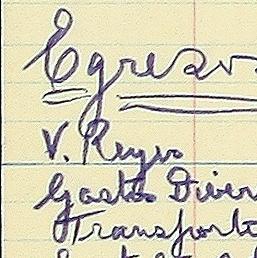 Egresos
V. Reyes
Gastos Diver
Transporte